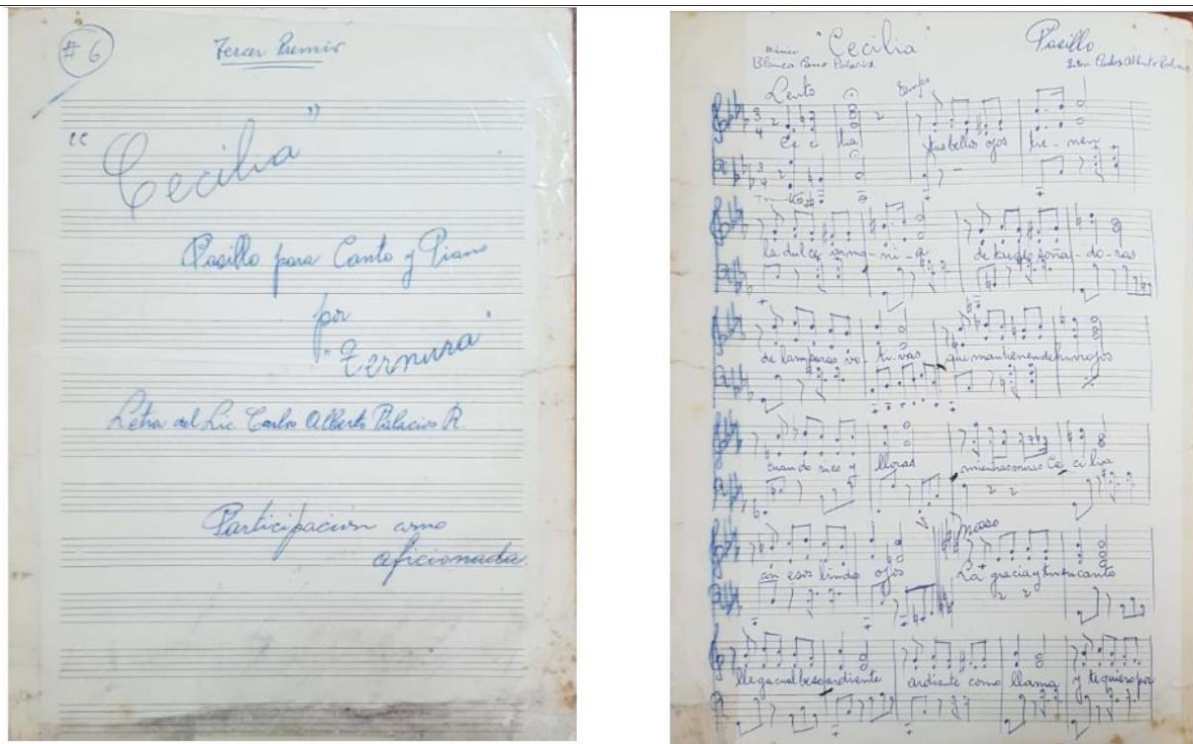 # 6
Tercer Premio
"Cecilia"
Pasillo para Canto y Piano
por
"Ternura"
Letra del Lic Carlos Alberto Palacios R.
Participacion como
aficionada
"Cecilia"
Pasillo
Blanca
Letra Carlos Alberto
Lento
Tiempo
Ce ci lia tus bellos ojos tie- nen
la dulce armo- ni- a de tardes soña- do- ras
de lamparas vo- ti- vas que mantienen
cuando ries y lloras Ce ci lia
con esos lindo ojos La gracia y tu encanto
llega cual beso ardiente ardiente como llama y te quiero por